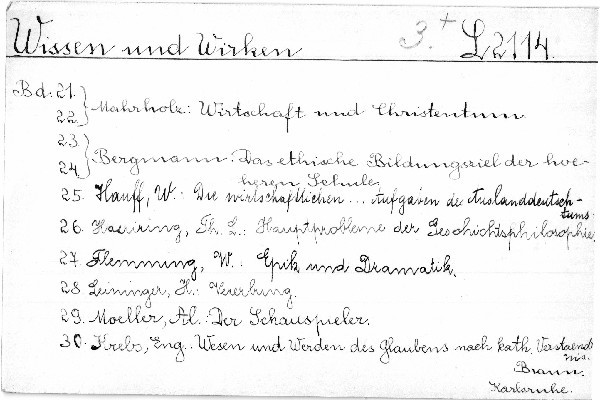 Wissen und Wirken 3.+ L2114.
Bd: 21.
22. } Mahrholz: Wirtschaft und Christentum
23.
24. } Bergmann: Das ethische Bildungsziel der hoe-
heren Schule.
25. Hauff, W.: Die wirtschaftlichen ... Aufgaben de Auslanddeutsch-
tums.
26. Haering, Th. L.: Hauptprobleme der Geschichtsphilosophie.
27. Flemming, W.: Epik und Dramatik.
28. Leininger, H.: Vererbung.
29. Moeller, Al.: Der Schauspieler.
30. Krebs, Eng. Wesen und Werden des Glaubens nach kath. Verstaend-
nis.
Braun.
Karlsruhe.